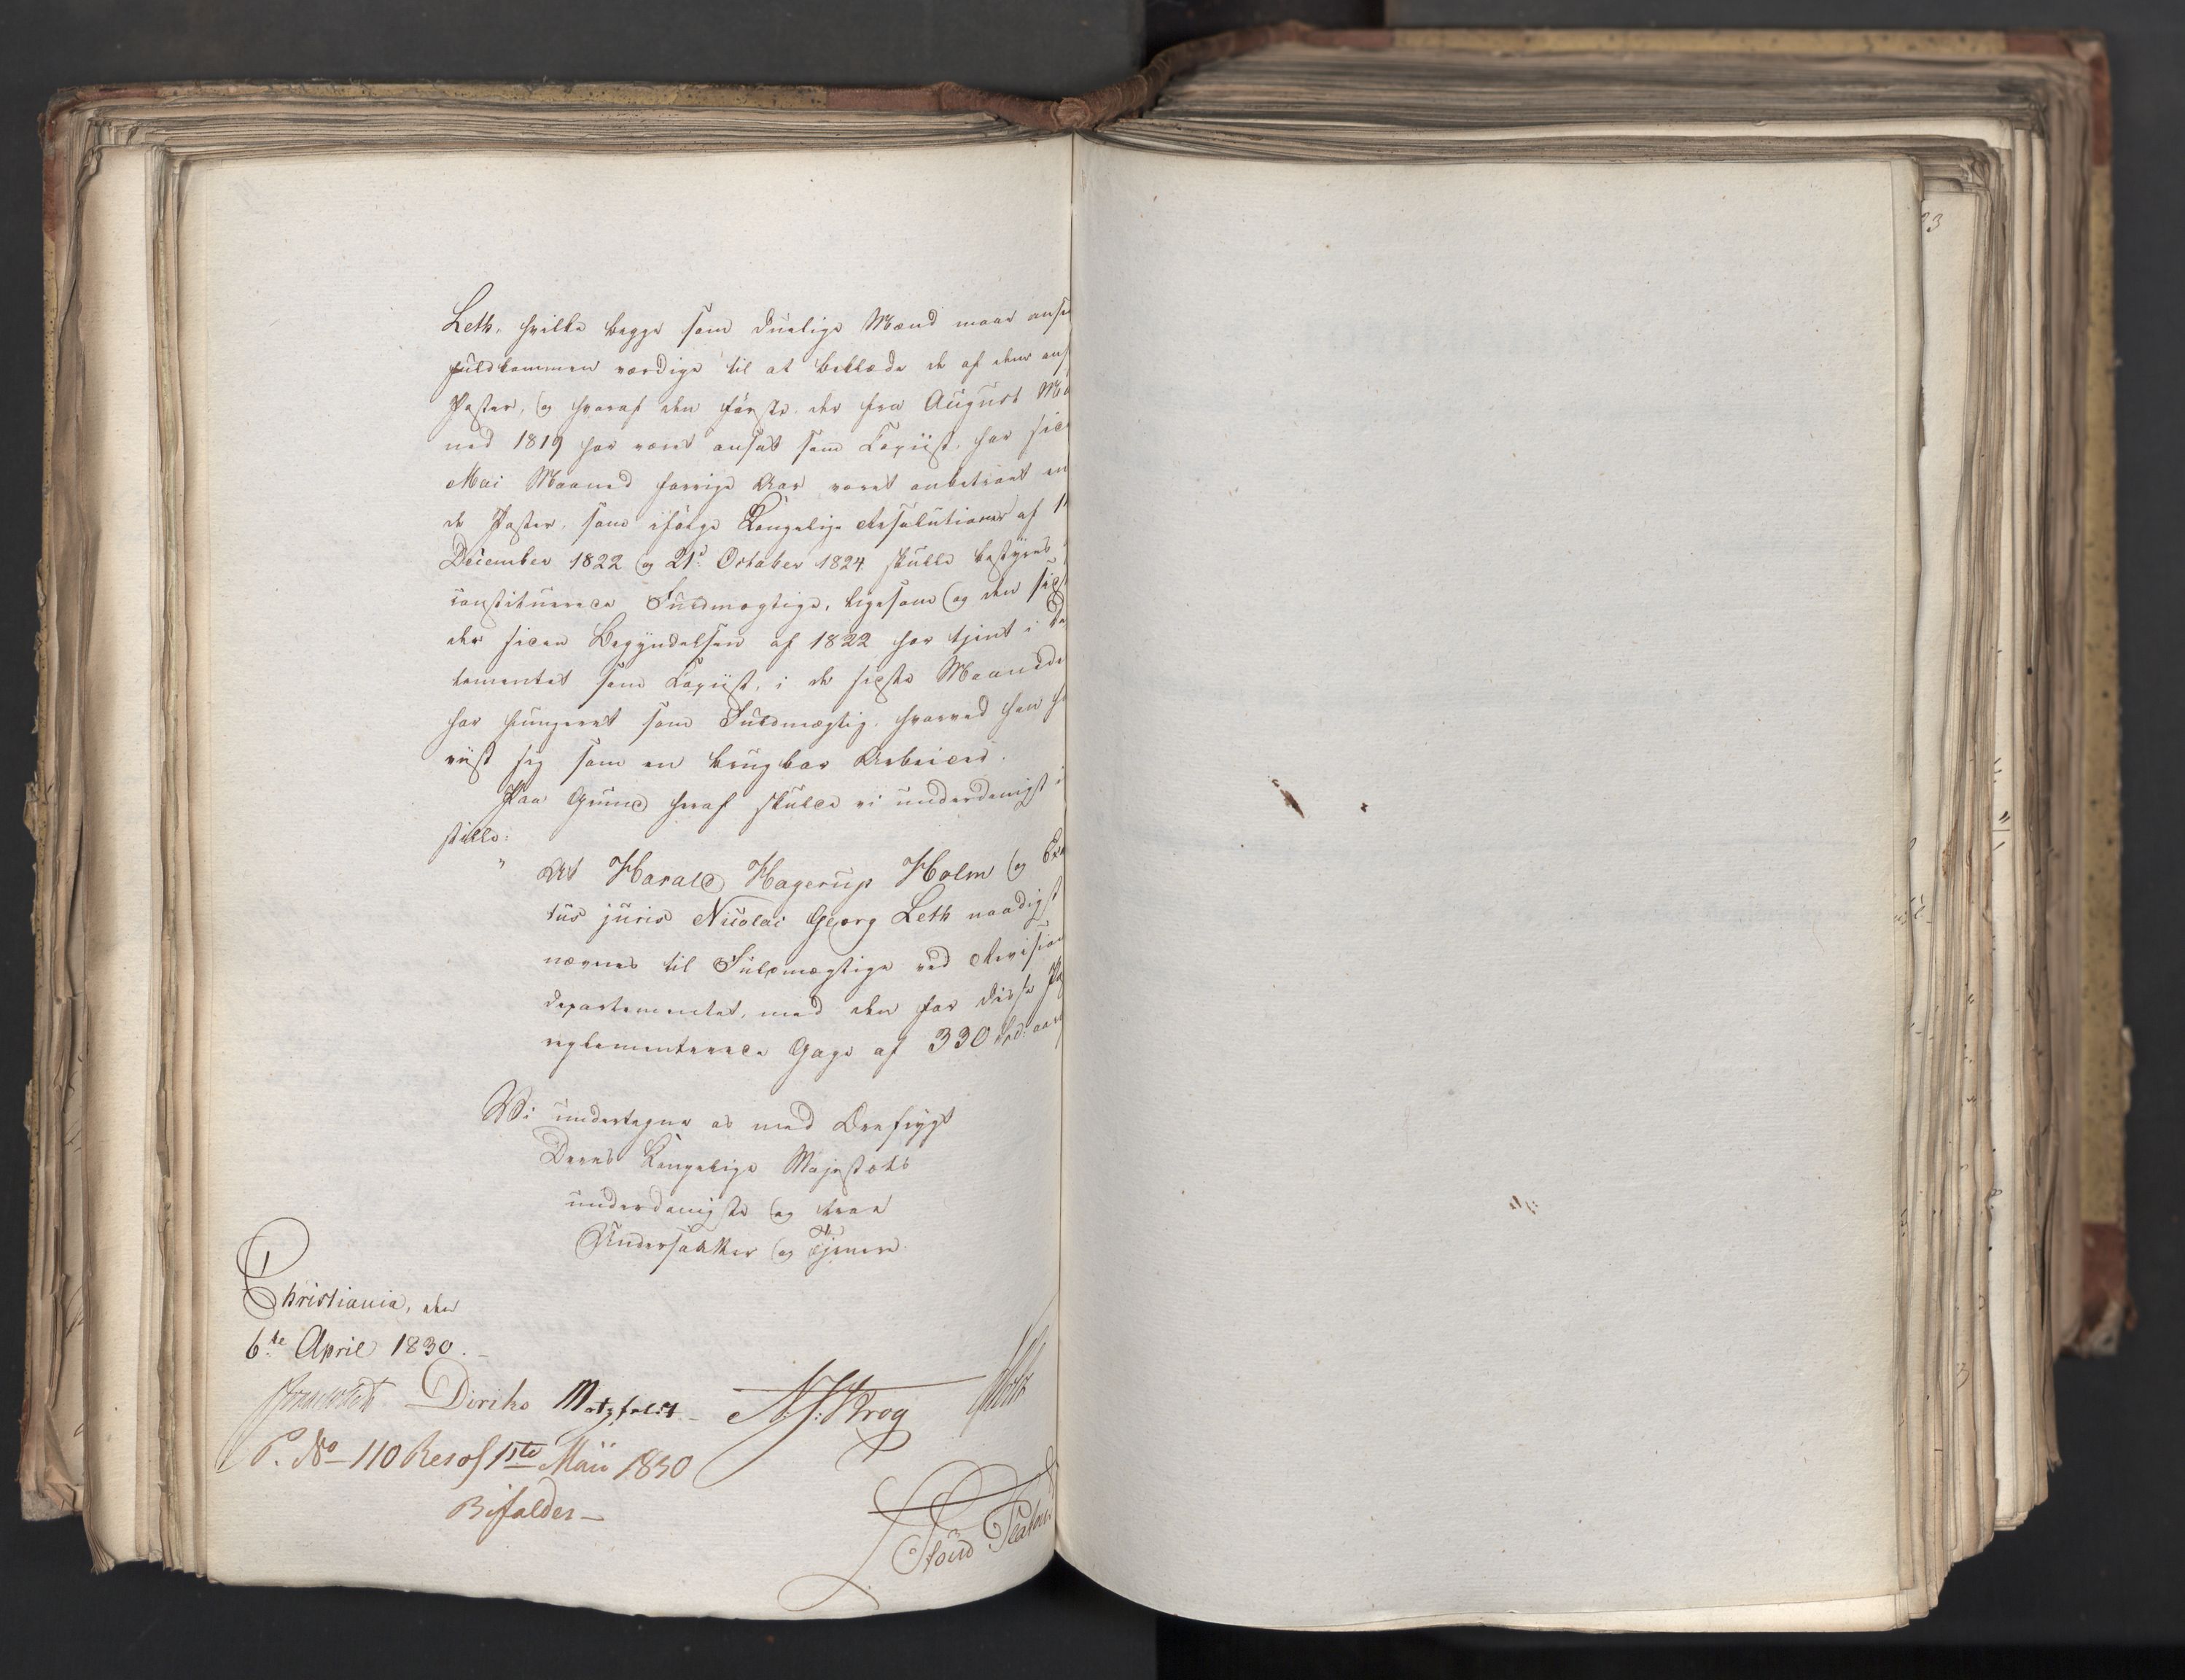 Leth, hvilke begge som duelige Mænd maae anse
fuldkommen værdige til at beklæde de af dem ans
Poster, og hvoraf den første, der fra August Ma
ned 1819 har været ansat som Copiist, har side
Mai Maaned forrige Aar været anbetroet en
de Poster, som ifølge Kongelige Resolutioner af
December 1822 og 21de October 1824 skulle bestyres
constituerede Fuldmægtige, ligesom og den sids
der siden Begyndelsen af 1822 har tjent i De
tementet som Copiist, i de sidste Maaneder
har fungeret som Fuldmægtig, hvorved han ha
viist sig som en brugbar Arbeider.
Paa Grund heraf skulde vi underdanigst i
stille:
" At Harald Hagerup Holm og
tus juris Nicolai Georg Leth naadigst
nævnes til Fuldmægtige ved Revisions
departementet, med den for disse Po
reglementerede Gage af 330 Spd: aar
Vi undertegne os med Ærefrygt
Deres Kongelige Majestæts
underdanigste og troe
Undersaatter og Tjenere.
Christiania, den
6te April 1830.
Diriks Motzfeldt N. J. Krog Holst
P. No 110 Resol 1ste Maii 1830
Bifaldes
Stoud Platou
23